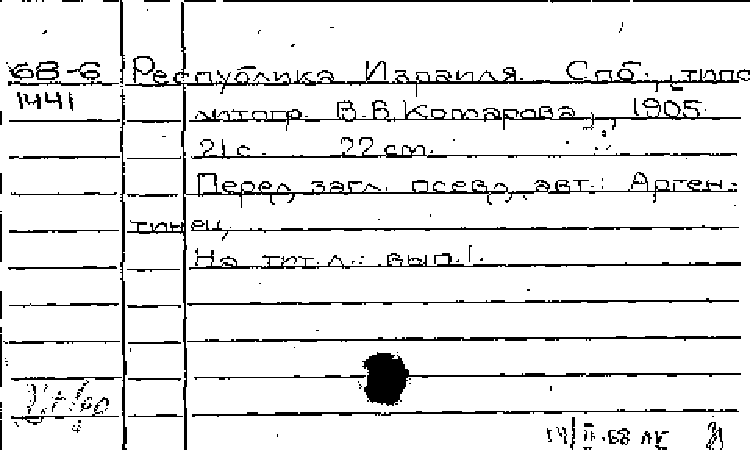 68-6 Республика Израиля. Спб., типо
1441
литогр. В.В. Комарова, 1905.
21 с. 22 см.
Перед загл. псевд. авт.: Арген-
тинец.
На тит. л.: вып. 1.
14/II-68